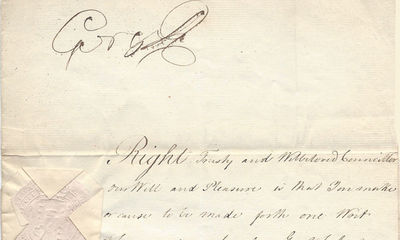 George R
Right Trusty and Welbeloved Councellor
our Will and Pleasure is that You make
or cause to be made forth one Writ